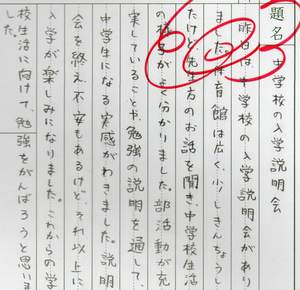 題名 中学校の入学説明会
昨日は中学校の入学説明会があり
ました。体育館は広く、少しきんちょうし
たけど、先生方のお話を聞き、中学校生活
の様子がよく分かりました。部活動が充
実していることや、勉強の説明を通して、
中学生になる実感がわきました。説明
会を終え、不安もあるけど、それ以上に
入学が楽しみになりました。これからの学
校生活に向けて、勉強をがんばろうと思いま
した。